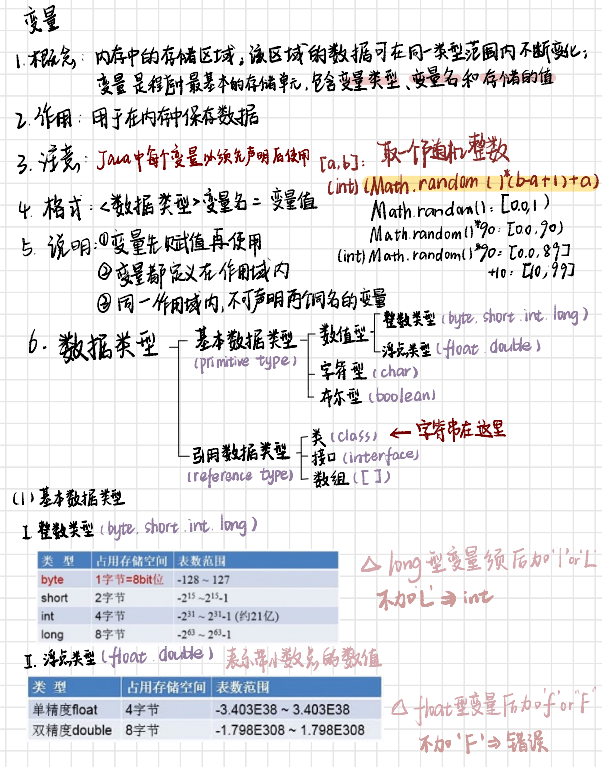 变量
1.概念: 内存中的存储区域,该区域的数据可在同一类型范围内不断变化;
变量是程序中最基本的存储单元,包含变量类型、变量名和存储的值
2.作用: 用于在内存中保存数据
3.注意: Java中每个变量必须先声明后使用
[a,b]: 取一个随机整数
(int)(Math.random()*(b-a+1)+a)
4.格式:<数据类型>变量名=变量值
Math.random(): [0.0,1)
5.说明:①变量先赋值再使用
Math.random()*90: [0.0,90)
②变量都定义在作用域内
(int)Math.random()*90: [0.0,89]
+10: [10,99]
③同一作用域内,不可声明两个同名的变量
6.数据类型
基本数据类型
(primitive type)
数值型
整数类型(byte.short.int.long)
浮点类型(float.double)
字符型(char)
布尔型(boolean)
引用数据类型
(reference type)
类(class) ← 字符串在这里
接口(interface)
数组([])
(1)基本数据类型
I.整数类型(byte.short.int.long)
类 型 占用存储空间 表数范围
byte 1字节=8bit位 -128 ~ 127
short 2字节 -2^15 ~ 2^15-1
int 4字节 -2^31 ~ 2^31-1 (约21亿)
long 8字节 -2^63 ~ 2^63-1
△ long型变量须后加'l'or'L'
不加'L'⇒int
II.浮点类型(float.double) 表示带小数点的数值
类 型 占用存储空间 表数范围
单精度float 4字节 -3.403E38 ~ 3.403E38
双精度double 8字节 -1.798E308 ~ 1.798E308
△ float型变量后加'f'or'F'
不加'F'⇒错误